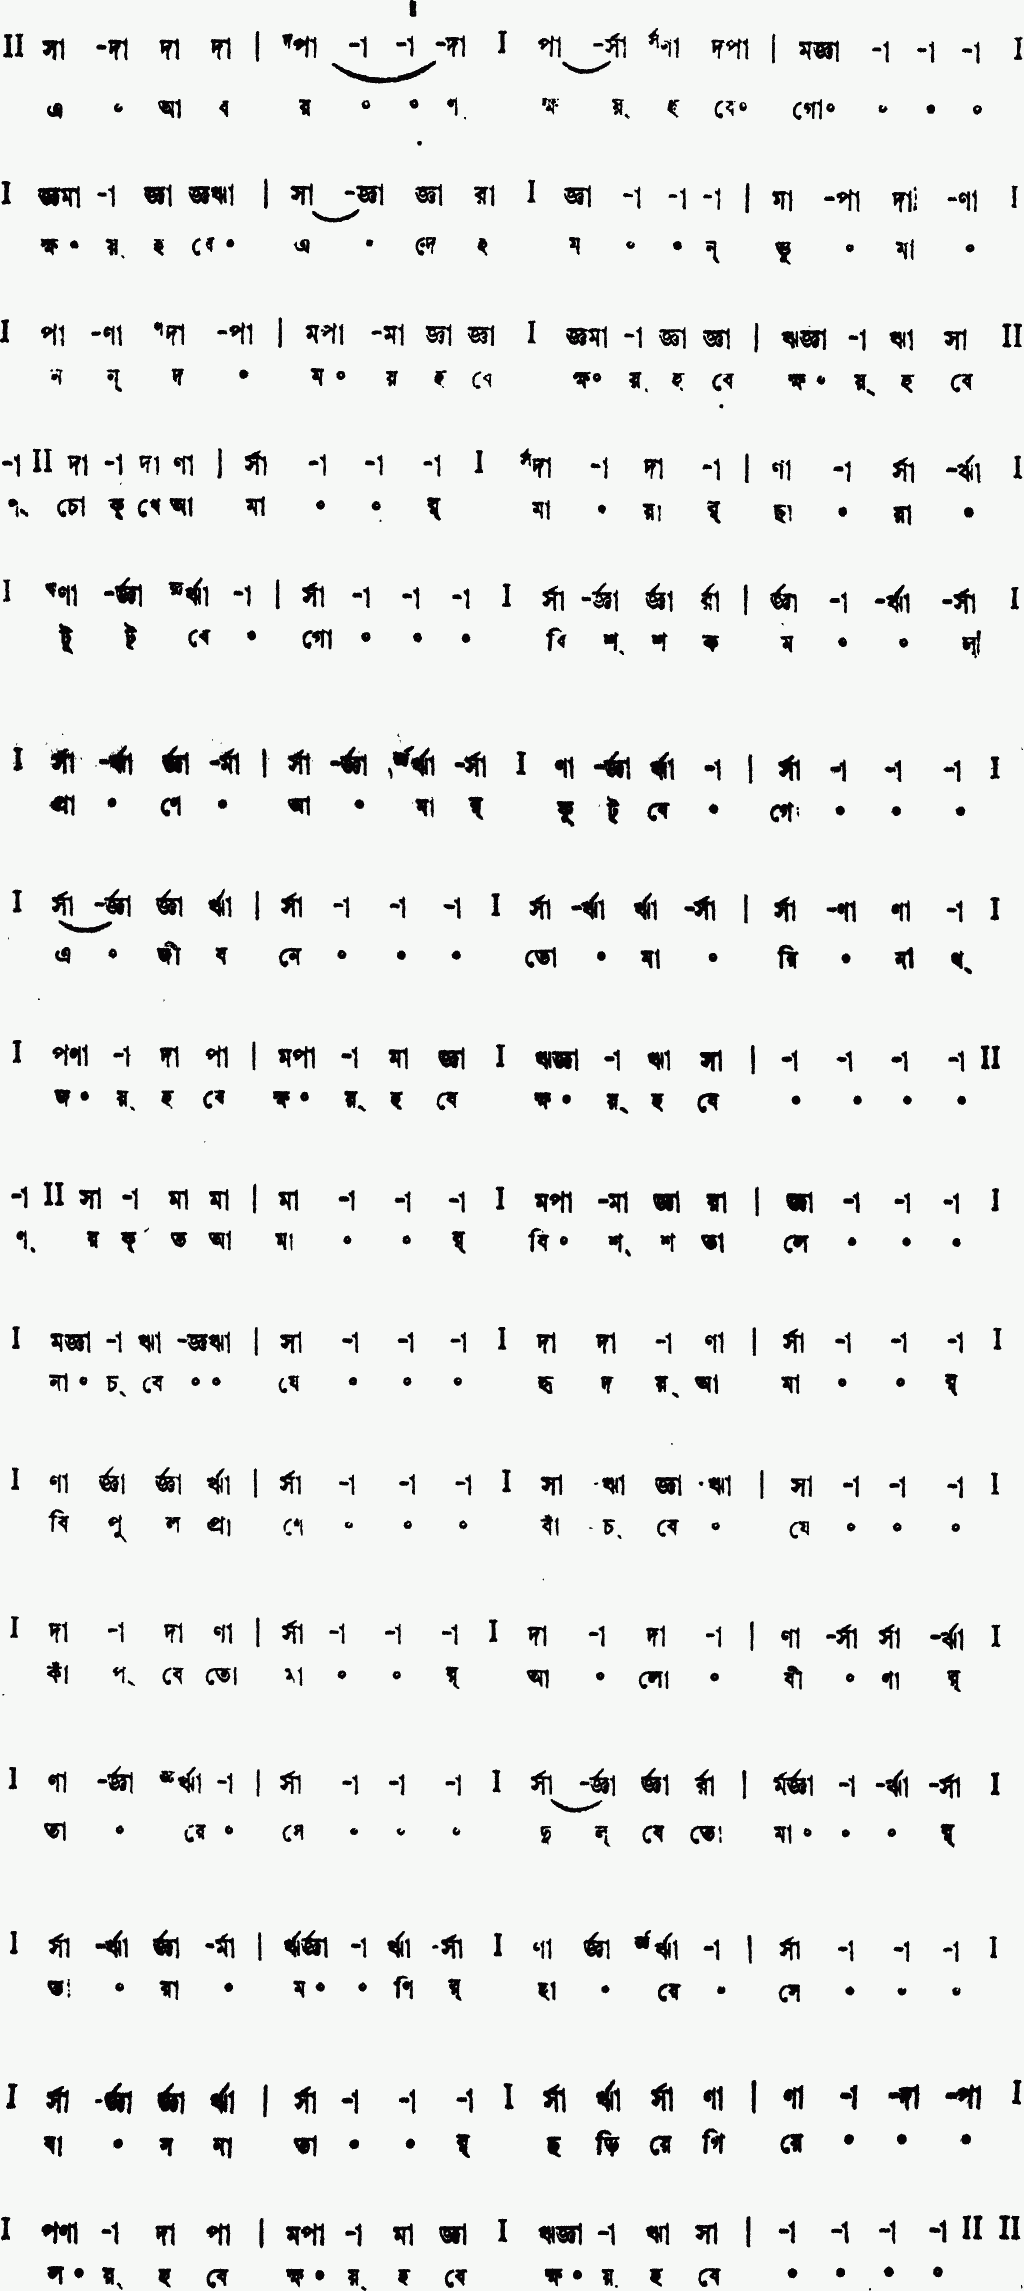 II সা -দা দা দা | ᵈপা -া -া -দা I পা -র্সা ᴿণা দপা | মজ্ঞা -া -া -া I
এ ॰ আ ব র ॰ ॰ ণ্ ক্ষ য়্ হ বে॰ গো॰ ॰ ॰ ॰
I জ্ঞমা -া জ্ঞা জ্ঞঋা | সা -জ্ঞা জ্ঞা রা I জ্ঞা -া -া -া | মা -পা দা -ণা I
ক্ষ॰ য়্ হ বে॰ এ ॰ দে হ ম ॰ ॰ ন্ ভূ ॰ মা ॰
I পা -ণা ণদা -পা | মপা -মা জ্ঞা জ্ঞা I জ্ঞমা -া জ্ঞা জ্ঞা | ঋজ্ঞা -া ঋা সা II
ন ন্ দ ॰ ম॰ য় হ বে ক্ষ॰ য়্ হ বে ক্ষ॰ য়্ হ বে
-া II দা -া দা ণা | র্সা -া -া -া I র্সদা -া দা -া | ণা -া র্সা -র্ঋা I
ণ্ চো ক্ খে আ মা ॰ ॰ র্ মা ॰ য়া র্ ছা ॰ য়া ॰
I ণা -র্জ্ঞা র্জ্ঞর্ঋা -া | র্সা -া -া -া I র্সা -র্জ্ঞা র্জ্ঞা র্রা | র্জ্ঞা -া -র্ঋা -র্সা I
টু ট্ বে ॰ গো ॰ ॰ ॰ বি শ্ শ ক ম ॰ ॰ ল্
I র্সা -র্ঋা র্জ্ঞা -র্মা | র্সা -র্জ্ঞা র্জ্ঞর্ঋা -র্সা I ণা -র্জ্ঞা র্ঋা -া | র্সা -া -া -া I
প্রা ॰ ণে ॰ আ ॰ মা র্ ফু ট্ বে ॰ গো ॰ ॰ ॰
I র্সা -র্জ্ঞা র্জ্ঞা র্ঋা | র্সা -া -া -া I র্সা -র্ঋা র্ঋা -র্সা | র্সা -ণা ণা -া I
এ ॰ জী ব নে ॰ ॰ ॰ তো ॰ মা ॰ রি ॰ না থ্
I পণা -া দা পা | মপা -া মা জ্ঞা I ঋজ্ঞা -া ঋা সা | -া -া -া -া II
জ॰ য়্ হ বে ক্ষ॰ য়্ হ বে ক্ষ॰ য়্ হ বে ॰ ॰ ॰ ॰
-া II সা -া মা মা | মা -া -া -া I মপা -মা জ্ঞা রা | জ্ঞা -া -া -া I
ণ্ র ক্ ত আ মা ॰ ॰ র্ বি॰ শ্ শ তা লে ॰ ॰ ॰
I মজ্ঞা -া ঋা -জ্ঞঋা | সা -া -া -া I দা দা -া ণা | র্সা -া -া -া I
না॰ চ্ বে ॰॰ যে ॰ ॰ ॰ হৃ দ য়্ আ মা ॰ ॰ র্
I ণা র্জ্ঞা র্জ্ঞা র্ঋা | র্সা -া -া -া I সা -ঋা জ্ঞা -ঋা | সা -া -া -া I
বি পু ল প্রা ণে ॰ ॰ ॰ বাঁ চ্ বে ॰ যে ॰ ॰ ॰
I দা -া দা ণা | র্সা -া -া -া I দা -া দা -া | ণা -র্সা র্সা -র্ঋা I
কাঁ প্ বে তো মা ॰ ॰ র্ আ ॰ লো ॰ বী ॰ ণা র্
I ণা -র্জ্ঞা র্জ্ঞর্ঋা -া | র্সা -া -া -া I র্সা -র্জ্ঞা র্জ্ঞা র্রা | র্মর্জ্ঞা -া -র্ঋা -র্সা I
তা ॰ রে ॰ সে ॰ ॰ ॰ দু ল্ বে তো মা॰ ॰ ॰ র্
I র্সা -র্ঋা র্জ্ঞা -র্মা | র্ঋর্জ্ঞা -া র্ঋা -র্সা I ণা র্জ্ঞা র্জ্ঞর্ঋা -া | র্সা -া -া -া I
তা ॰ রা ॰ ম॰ ॰ ণি র্ হা ॰ রে ॰ সে ॰ ॰ ॰
I র্সা -র্জ্ঞা র্জ্ঞা র্ঋা | র্সা -া -া -া I র্সা র্ঋা র্সা ণা | ণা -া -দা -পা I
বা ॰ স না তা ॰ ॰ র্ ছ ড়ি য়ে গি য়ে ॰ ॰ ॰
I পণা -া দা পা | মপা -া মা জ্ঞা I ঋজ্ঞা -া ঋা সা | -া -া -া -া II II
ল॰ য়্ হ বে ক্ষ॰ য়্ হ বে ক্ষ॰ য়্ হ বে ॰ ॰ ॰ ॰